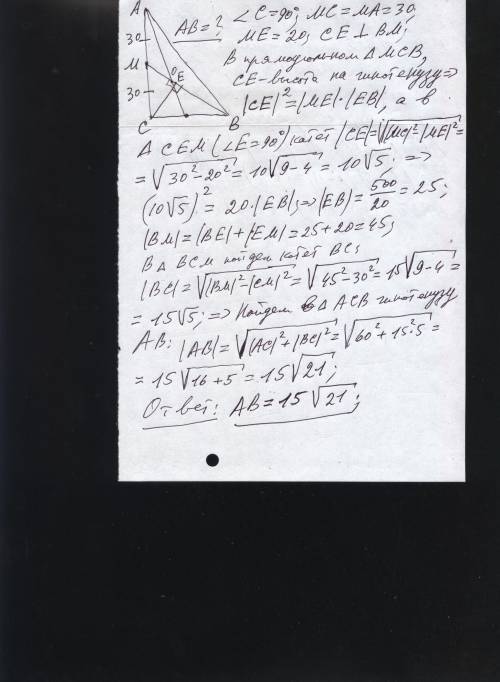 A
AB=?
∠C=90°; MC=MA=30,
30
ME=20; CE⊥BM;
M
O E
В прямоугольном ΔMCB,
30
CE-высота на гипотенузу⇒
C
B
|CE|²=|ME|·|EB|, а в
ΔCEM(∠E=90°) катет |CE|=√(|MC|²-|ME|²)=
=√(30²-20²)=10√(9-4)=10√5; ⇒
(10√5)²=20·|EB|;⇒|EB|=500/20=25;
|BM|=|BE|+|EM|=25+20=45;
В Δ BCM найдем катет BC;
|BC|=√(|BM|²-|CM|²)=√(45²-30²)=15√(9-4)=
=15√5;⇒ Найдем в Δ ACB гипотенузу
AB: |AB|=√(|AC|²+|BC|²)=√(60²+15²·5)=
=15√(16+5)=15√21;
Ответ: AB=15√21;